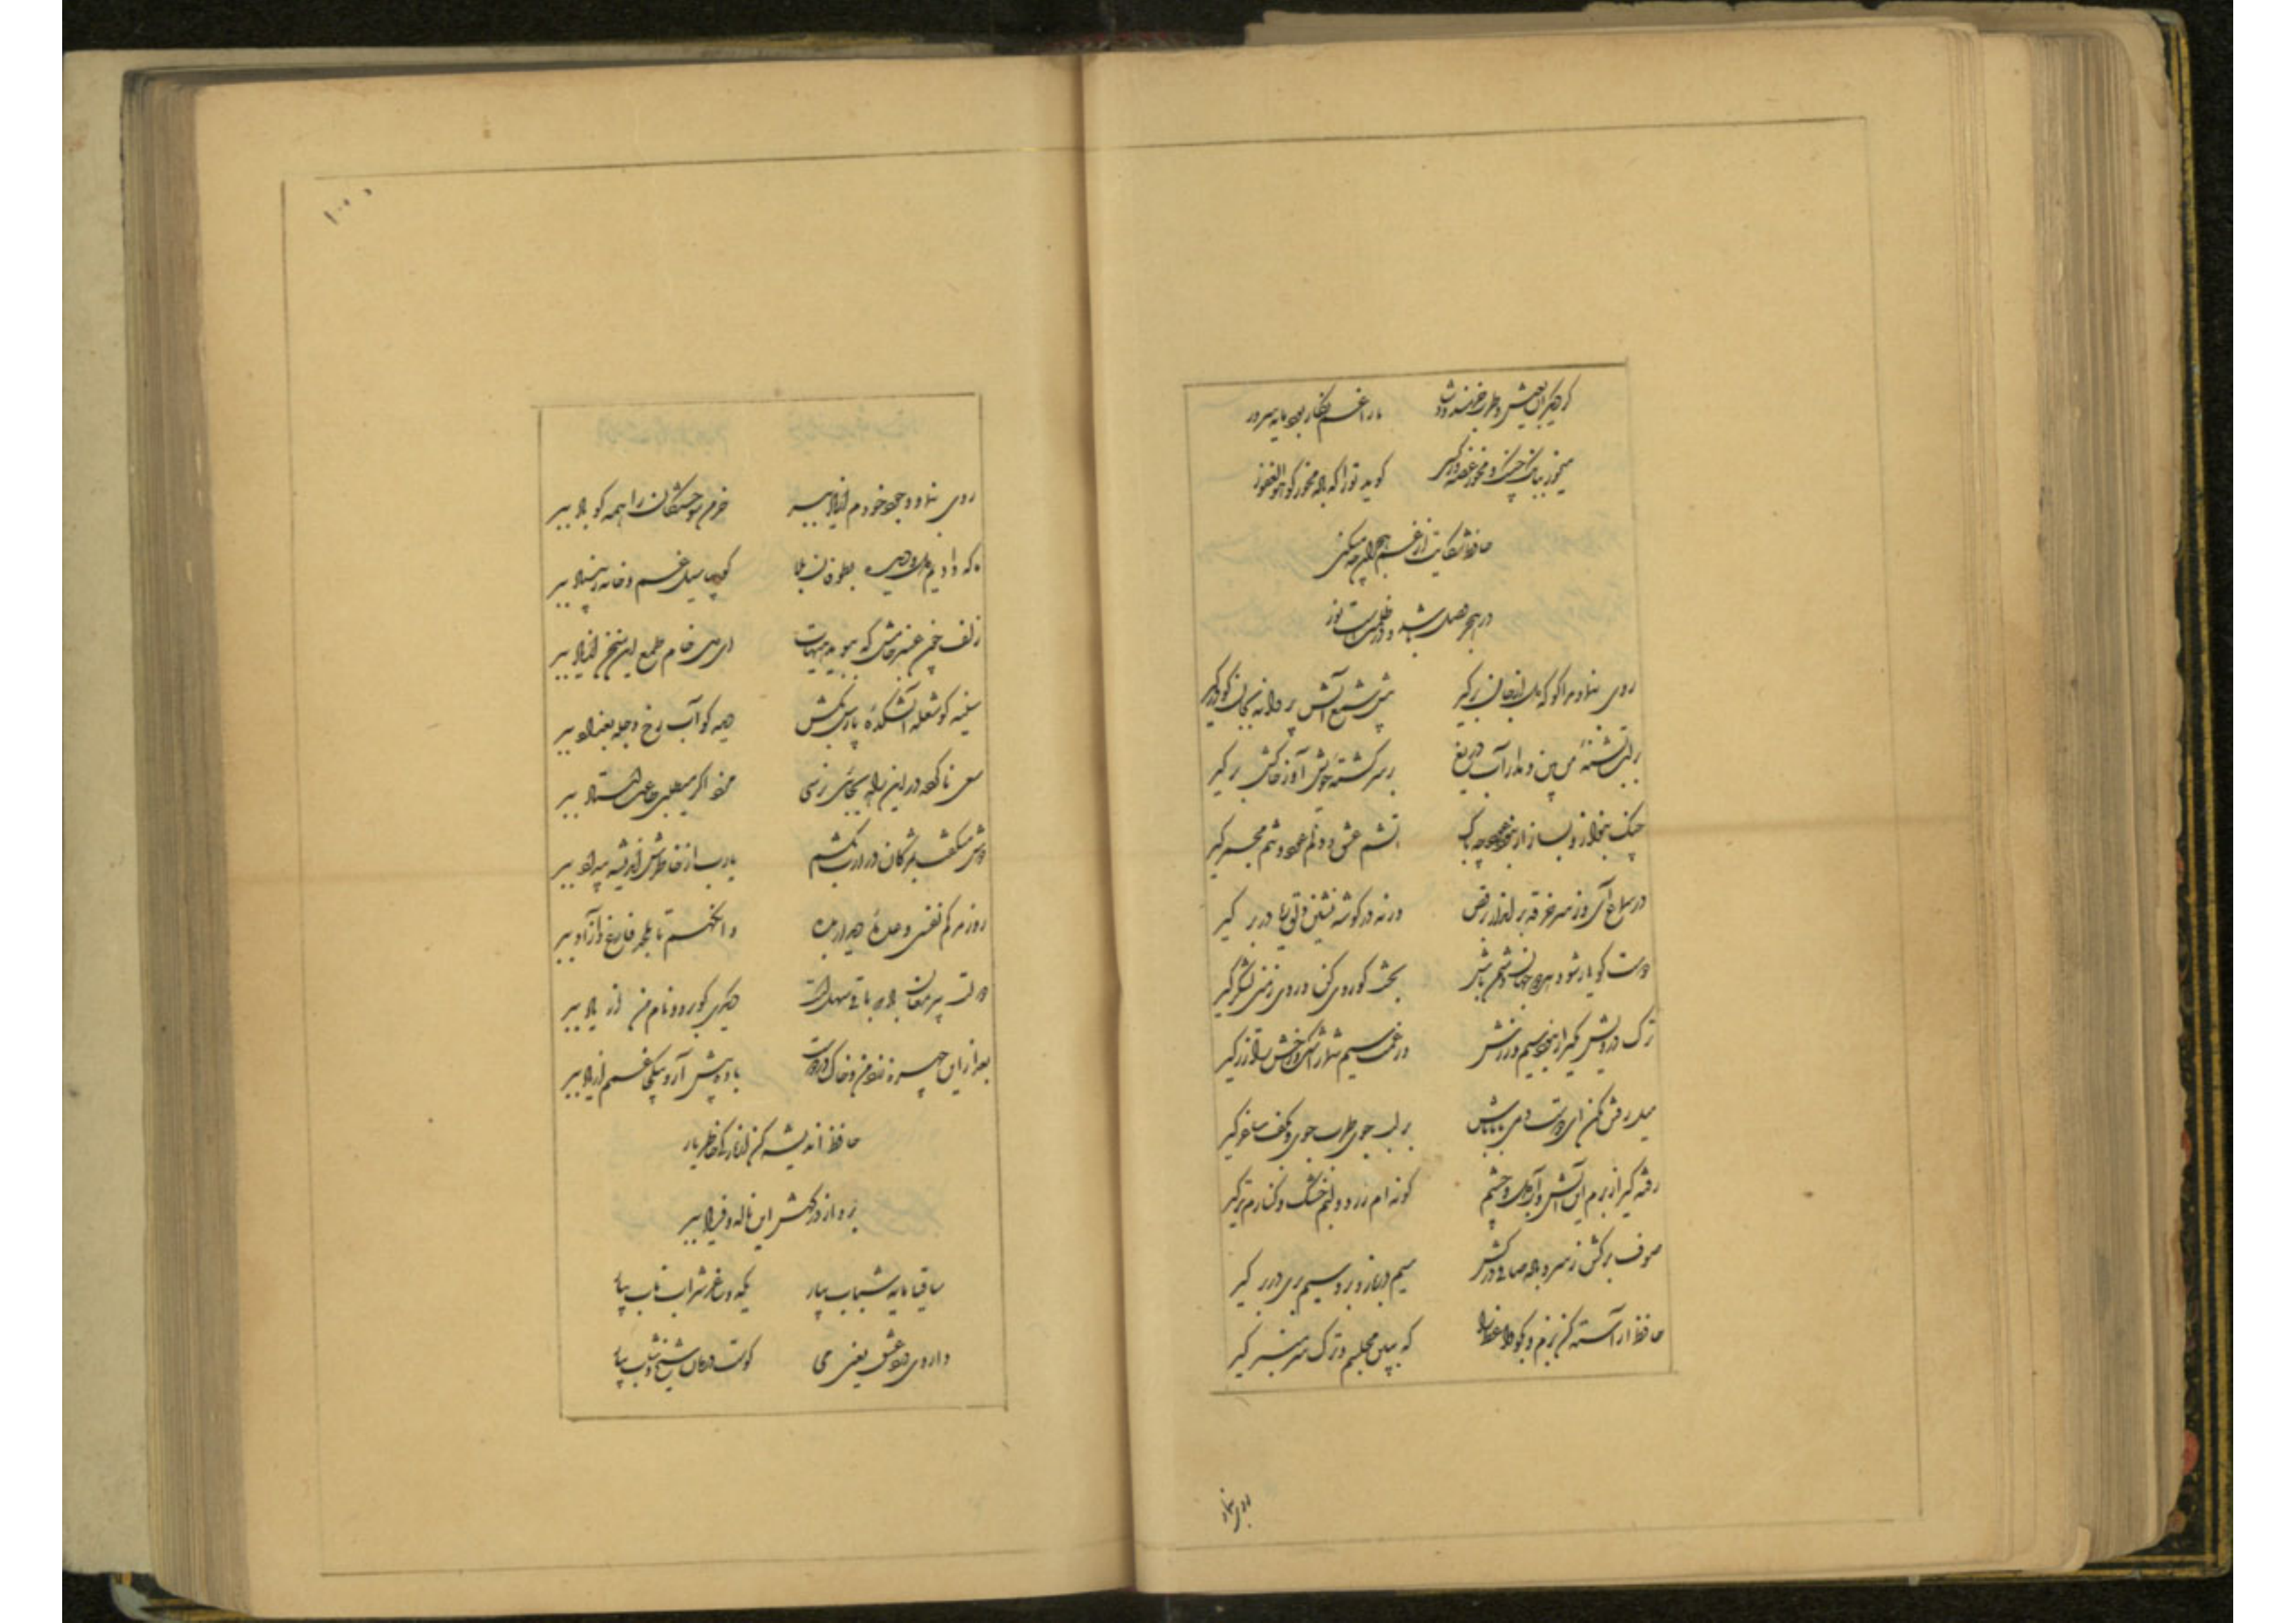 گر دیگران بعیش و طرب خرمند و شاد ما را غم نگار بود مایه سرور
میخور ببانگ چنگ و مخور غصه ور کسی گوید تو را که باده مخور گو هو الغفور
حافظ شکایت از غم هجران چه میکنی
در هجر وصل باشد و در ظلمت است نور
روی بنما و مرا گو که دل از جان برگیر پیش شمع آتش پروانه بجان گو درگیر
بر لب تشنه من بین و مدار آب دریغ بر سر کشته خویش آی و ز خاکش برگیر
چنگ بنواز و بساز ار نبود عود چه باک آتشم عشق و دلم عود و تنم مجمر گیر
در سماع آی و ز سر خرقه برانداز و برقص ورنه در گوشه نشین و دلق ریا در بر گیر
دوست گو یار شو و هر دو جهان دشمن باش بخت گو روی کن و روی زمین لشکر گیر
ترک درویش مگیر ار نبود سیم و زرش در غمت سیم شمار اشک و رخش را زر گیر
میل رفتن مکن ای دوست دمی با ما باش بر لب جوی طرب جوی و بکف ساغر گیر
رفته گیر از برم این آتش و آب دل و چشم گونه ام زرد و لبم خشک و کنارم تر گیر
صوف برکش ز سر و باده صافی درکش سیم در باز و بزر سیم بری در بر گیر
حافظ آراسته کن بزم و بگو واعظ را که ببین مجلسم و ترک سر منبر گیر
روی بنما
روی بنما و وجود خودم از یاد ببر خرمن سوختگان را همه گو باد ببر
ما که دادیم دل و دیده بطوفان بلا گو بیا سیل غم و خانه ز بنیاد ببر
زلف چون عنبر خامش که ببوید هیهات ای دل خام طمع این سخن از یاد ببر
سینه گو شعله آتشکده پارس بکش دیده گو آب رخ دجله بغداد ببر
سعی ناکرده در این راه بجائی نرسی مزد اگر میطلبی طاعت استاد ببر
دوش میگفت بمژگان درازت بکشم یا رب از خاطرش اندیشه بیداد ببر
روز مرگم نفسی وعده دیدار بده وانگهم تا بلحد فارغ و آزاد ببر
دولت پیر مغان باد که باقی سهل است دیگری گو برو و نام من از یاد ببر
بعد از این چهره زرد من و خاک در دوست باده پیش آر و بیکبار غم از یاد ببر
حافظ اندیشه کن از نازکی خاطر یار
برو از درگهش این ناله و فریاد ببر
ساقیا مایه شباب بیار یکدو ساغر شراب ناب بیار
داروی درد عشق یعنی می کوست درمان شیخ و شاب بیار